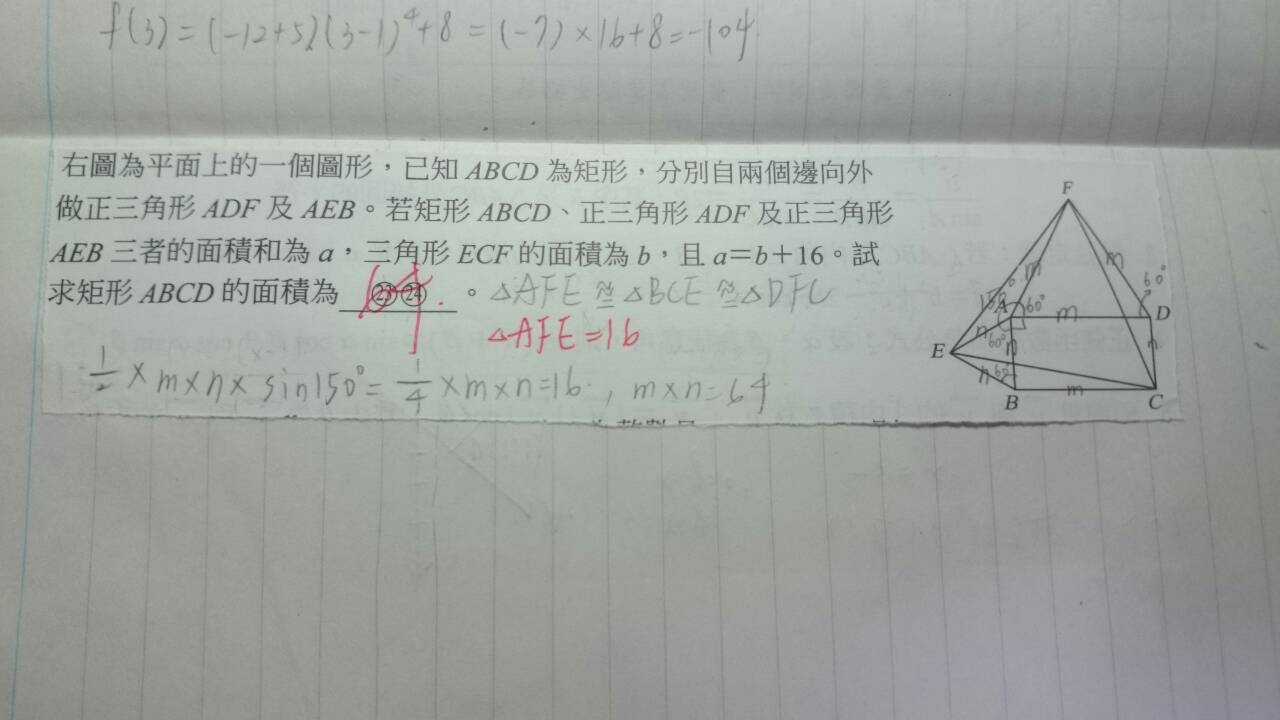 f(3) = (-12+5)(3-1)⁴+8 = (-7)×16+8=-104
右圖為平面上的一個圖形，已知 ABCD 為矩形，分別自兩個邊向外
做正三角形 ADF 及 AEB。若矩形 ABCD、正三角形 ADF 及正三角形
AEB 三者的面積和為 a，三角形 ECF 的面積為 b，且 a＝b＋16。試
求矩形 ABCD 的面積為 ㉓㉔ 。 △AFE ≅ △BCE ≅ △DFC
64
△AFE=16
½ × m × n × sin150° = ¼ × m × n = 16, m×n=64
F
m
m
60°
150°
A
60°
m
D
n
60°
n
n
E
n
60°
B
m
C